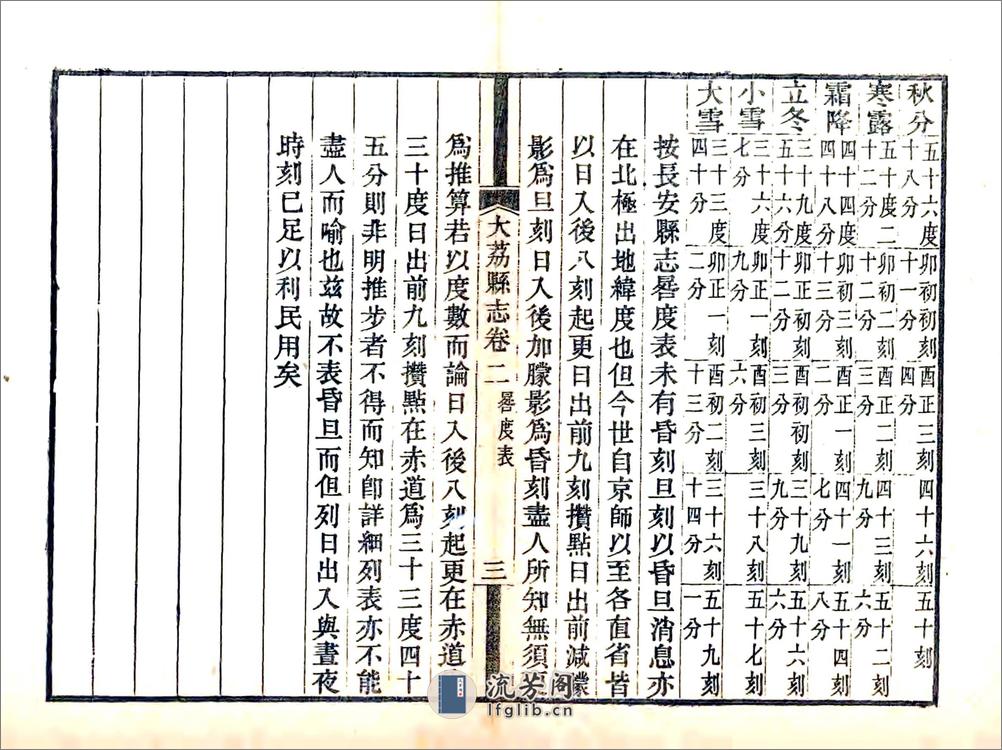 秋分 五十六度十八分 卯初初刻十一分 酉正三刻四分 四十六刻 五十刻
寒露 五十度二十二分 卯初二刻 酉正二刻 四十三刻九分 五十二刻六分
霜降 四十四度四十八分 卯初三刻十三分 酉正一刻二分 四十一刻七分 五十四刻八分
立冬 三十九度五十六分 卯正初刻十二分 酉初初刻三分 三十九刻九分 五十六刻六分
小雪 三十六度七分 卯正一刻九分 酉初三刻六分 三十八刻 五十七刻
大雪 三十三度四十分 卯正一刻二分 酉初二刻十三分 三十六刻十四分 五十九刻一分
按長安縣志晷度表未有昏刻旦刻以昏旦消息亦
在北極出地緯度也但今世自京師以至各直省皆
以日入後八刻起更日出前九刻攢點日出前減朦
影爲旦刻日入後加朦影爲昏刻盡人所知無須
大荔縣志卷二 晷度表 三
爲推算若以度數而論日入後八刻起更在赤道
三十度日出前九刻攢點在赤道爲三十三度四十
五分則非明推步者不得而知卽詳細列表亦不能
盡人而喻也兹故不表昏旦而但列日出入與晝夜
時刻已足以利民用矣
流芳阁
lfglib.cn